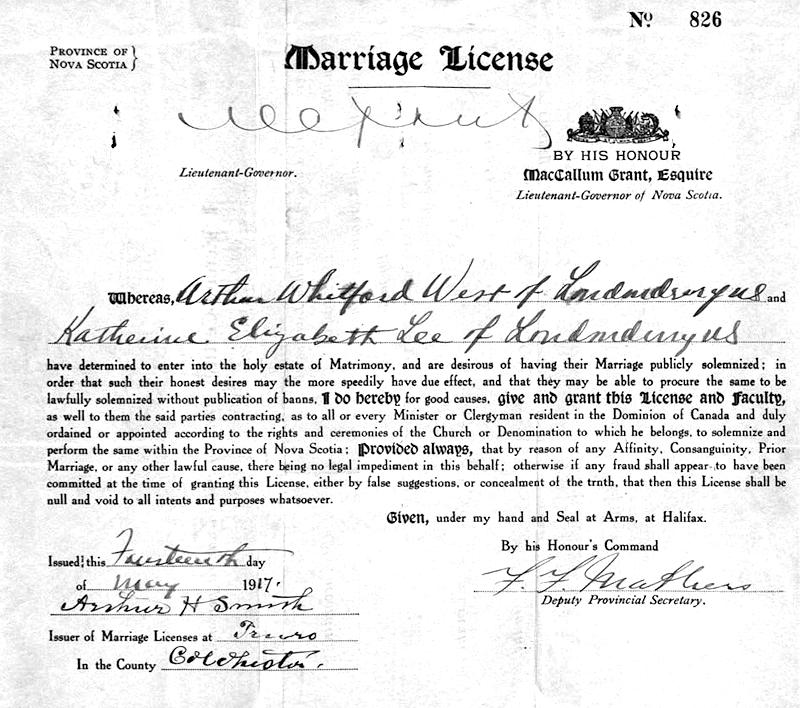 No. 826
PROVINCE OF
NOVA SCOTIA
Marriage License
MacCallum Grant
Lieutenant-Governor.
BY HIS HONOUR
MacCallum Grant, Esquire
Lieutenant-Governor of Nova Scotia.
Whereas, Arthur Whitford West of Londonderry NS and
Katherine Elizabeth Lee of Londonderry NS
have determined to enter into the holy estate of Matrimony, and are desirous of having their Marriage publicly solemnized; in
order that such their honest desires may the more speedily have due effect, and that they may be able to procure the same to be
lawfully solemnized without publication of banns, I do hereby for good causes, give and grant this License and Faculty,
as well to them the said parties contracting, as to all or every Minister or Clergyman resident in the Dominion of Canada and duly
ordained or appointed according to the rights and ceremonies of the Church or Denomination to which he belongs, to solemnize and
perform the same within the Province of Nova Scotia; Provided always, that by reason of any Affinity, Consanguinity, Prior
Marriage, or any other lawful cause, there being no legal impediment in this behalf; otherwise if any fraud shall appear to have been
committed at the time of granting this License, either by false suggestions, or concealment of the trnth, that then this License shall be
null and void to all intents and purposes whatsoever.
Given, under my hand and Seal at Arms, at Halifax.
By his Honour's Command
F. F. Mathers
Deputy Provincial Secretary.
Issued this Fourteenth day
of May 1917.
Arthur H Smith
Issuer of Marriage Licenses at Truro
In the County Colchester.